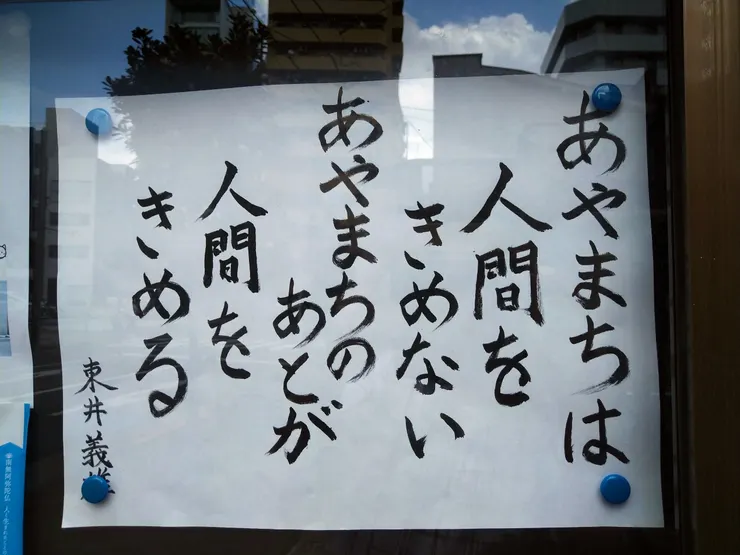 あやまちは
人間を
きめない
あやまちの
あとが
人間を
きめる
東井義雄
南無阿弥陀仏